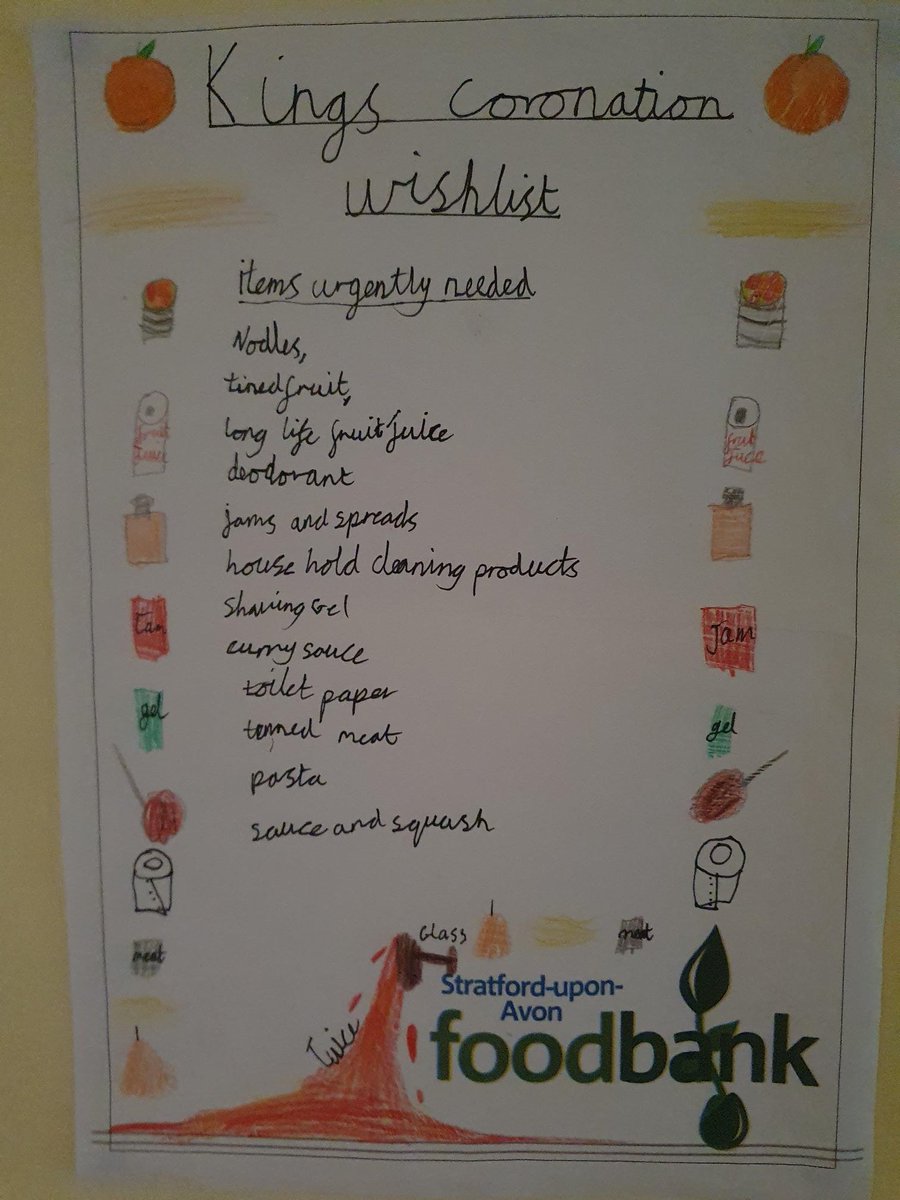 Kings coronation
wishlist
items urgently needed
Nodles,
tined fruit,
long life fruit juice
deodorant
jams and spreads
house hold cleaning products
shaving Gel
curry sauce
toilet paper
tinned meat
pasta
sauce and squash
fruit juice
fruit juice
Jam
Jam
gel
gel
meat
Glass
meat
Juice
Stratford-upon-
Avon
foodbank